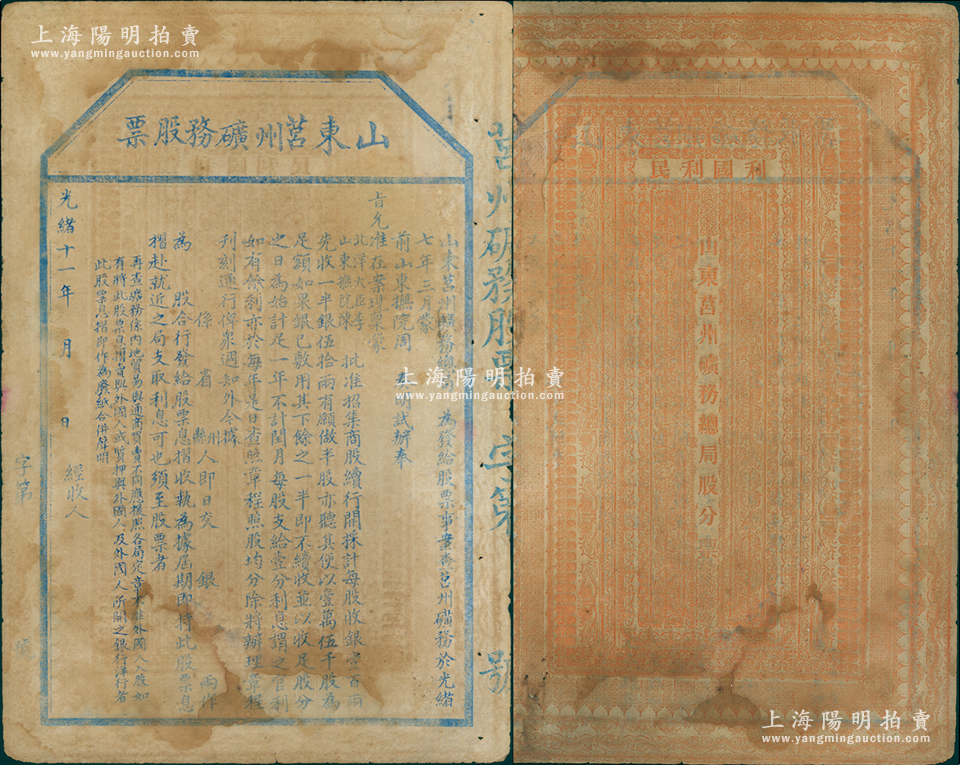 上海陽明拍賣
www.yangmingauction.com
山東莒州礦務股票
山東莒州礦務總 為發給股票事案查莒州礦務於光緒
七年三月蒙
前山東撫院周 試辦奉
旨允准在案現稟蒙
北洋大臣李
山東撫院陳 批准招集商股續行開採計每股收銀壹百兩
先收一半銀伍拾兩有願做半股亦聽其便以壹萬伍千股為
足額如果銀已敷用其下餘之一半即不續收並以收足股分
之日為始計足一年不計閏月每股支給壹分利息謂之官利
如有餘利亦於每年是日查照章程照股均分除將辦理章程
刊刻通行俾衆週知外今據
係 省 州縣 人即日交 銀 兩作
為 股合行發給股票息摺收執為據屆期即持此股票息
摺赴就近之局支取利息可也須至股票者
再查礦務係內地貿易與通商買賣不同應援照各局定章不准外國人入股如
有將此股票息摺賣與外國人或質押與外國人及外國人所開之銀行洋行者
此股票息摺即作為廢紙合併聲明
光緒十一年 月 日
經收人
字第 號
莒州礦務股票 字第 號
上海陽明拍賣
www.yangmingauction.com
上海陽明拍賣
www.yangmingauction.com
利國利民
山東莒州礦務總局股分
上海陽明拍賣
www.yangmingauction.com